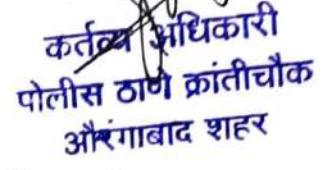 कर्तव्य अधिकारी
पोलीस ठाणे क्रांतीचौक
औरंगाबाद शहर